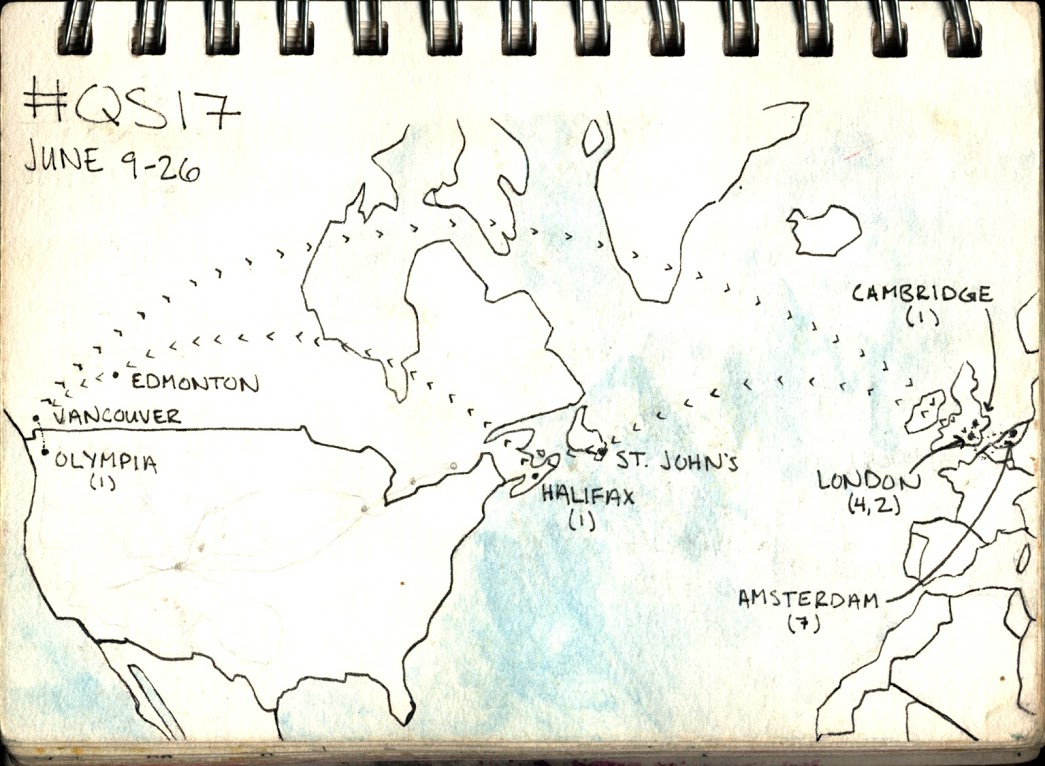 #QS17
JUNE 9-26
CAMBRIDGE
(1)
EDMONTON
VANCOUVER
OLYMPIA
(1)
ST. JOHN'S
HALIFAX
(1)
LONDON
(4,2)
AMSTERDAM
(7)